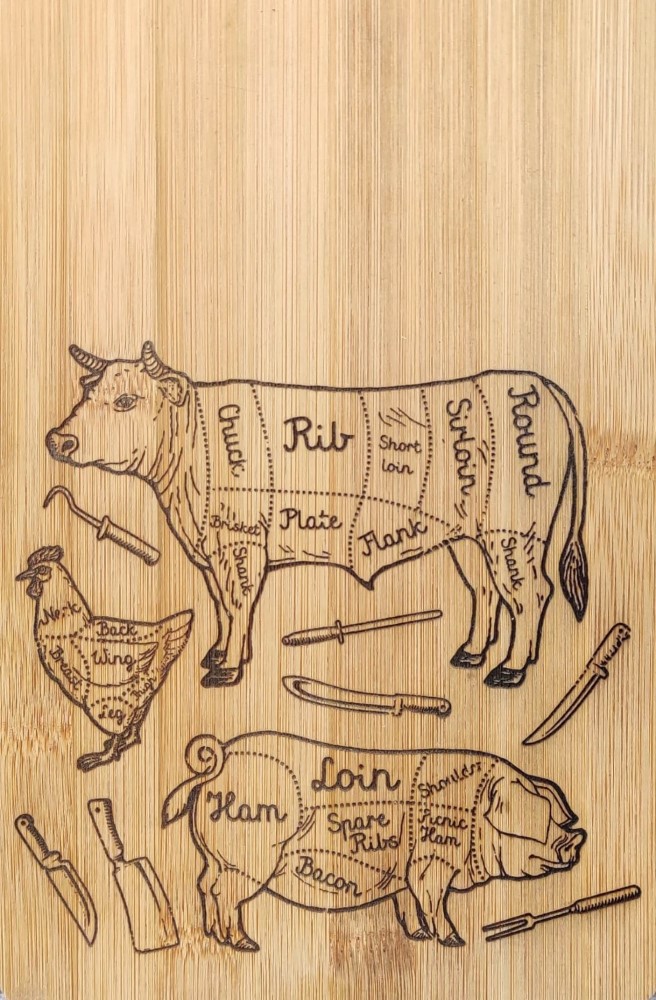 Chuck
Rib
Short
loin
Sirloin
Round
Brisket
Plate
Flank
Shank
Shank
Neck
Back
Breast
Wing
Thigh
Leg
Ham
Loin
Shoulder
Spare
Ribs
Picnic
Ham
Bacon